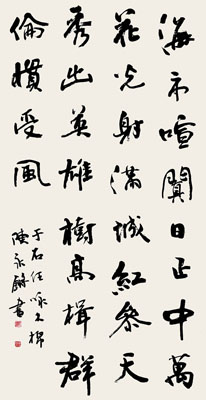 海市喧闐日正中萬
花光射滿城紅參天
秀出英雄樹高揖群
倫慣受風
于右任咏木棉
陳永書